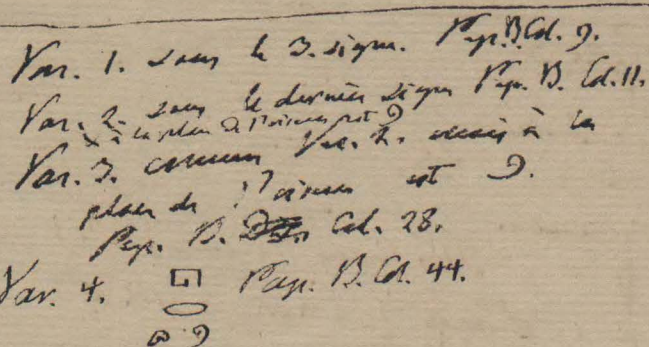 Var. 1. sans le 3. signe. Pap. B. Col. 9.
Var. 2. sans le dernier signe Pap. B. Col. 11.
à la place de l'oiseau est
Var. 3. comme Var. 2. mais à la
place de l'oiseau est
Pap. B. Col. 28.
Var. 4. Pap. B. Col. 44.